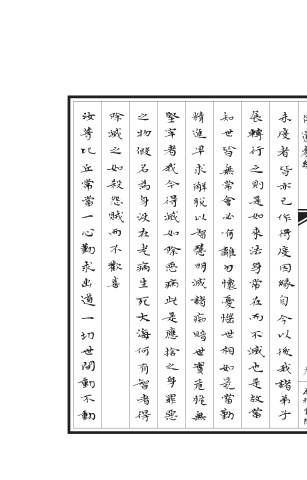 未度者皆亦已作得度因緣自今以後我諸弟子
展轉行之則是如來法身常在而不滅也是故當
知世皆無常會必有離勿懷憂惱世相如是當勤
精進早求解脫以智慧明滅諸癡暗世實危脆無
堅牢者我今得滅如除惡病此是應捨之身罪惡
之物假名為身沒在老病生死大海何有智者得
除滅之如殺怨賊而不歡喜
汝等比丘常當一心勤求出道一切世間動不動